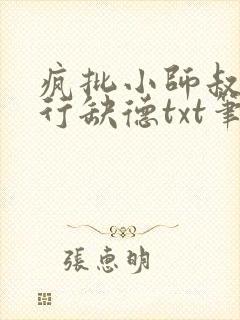 疯批小師叔
行缺德txt筆
張惠明